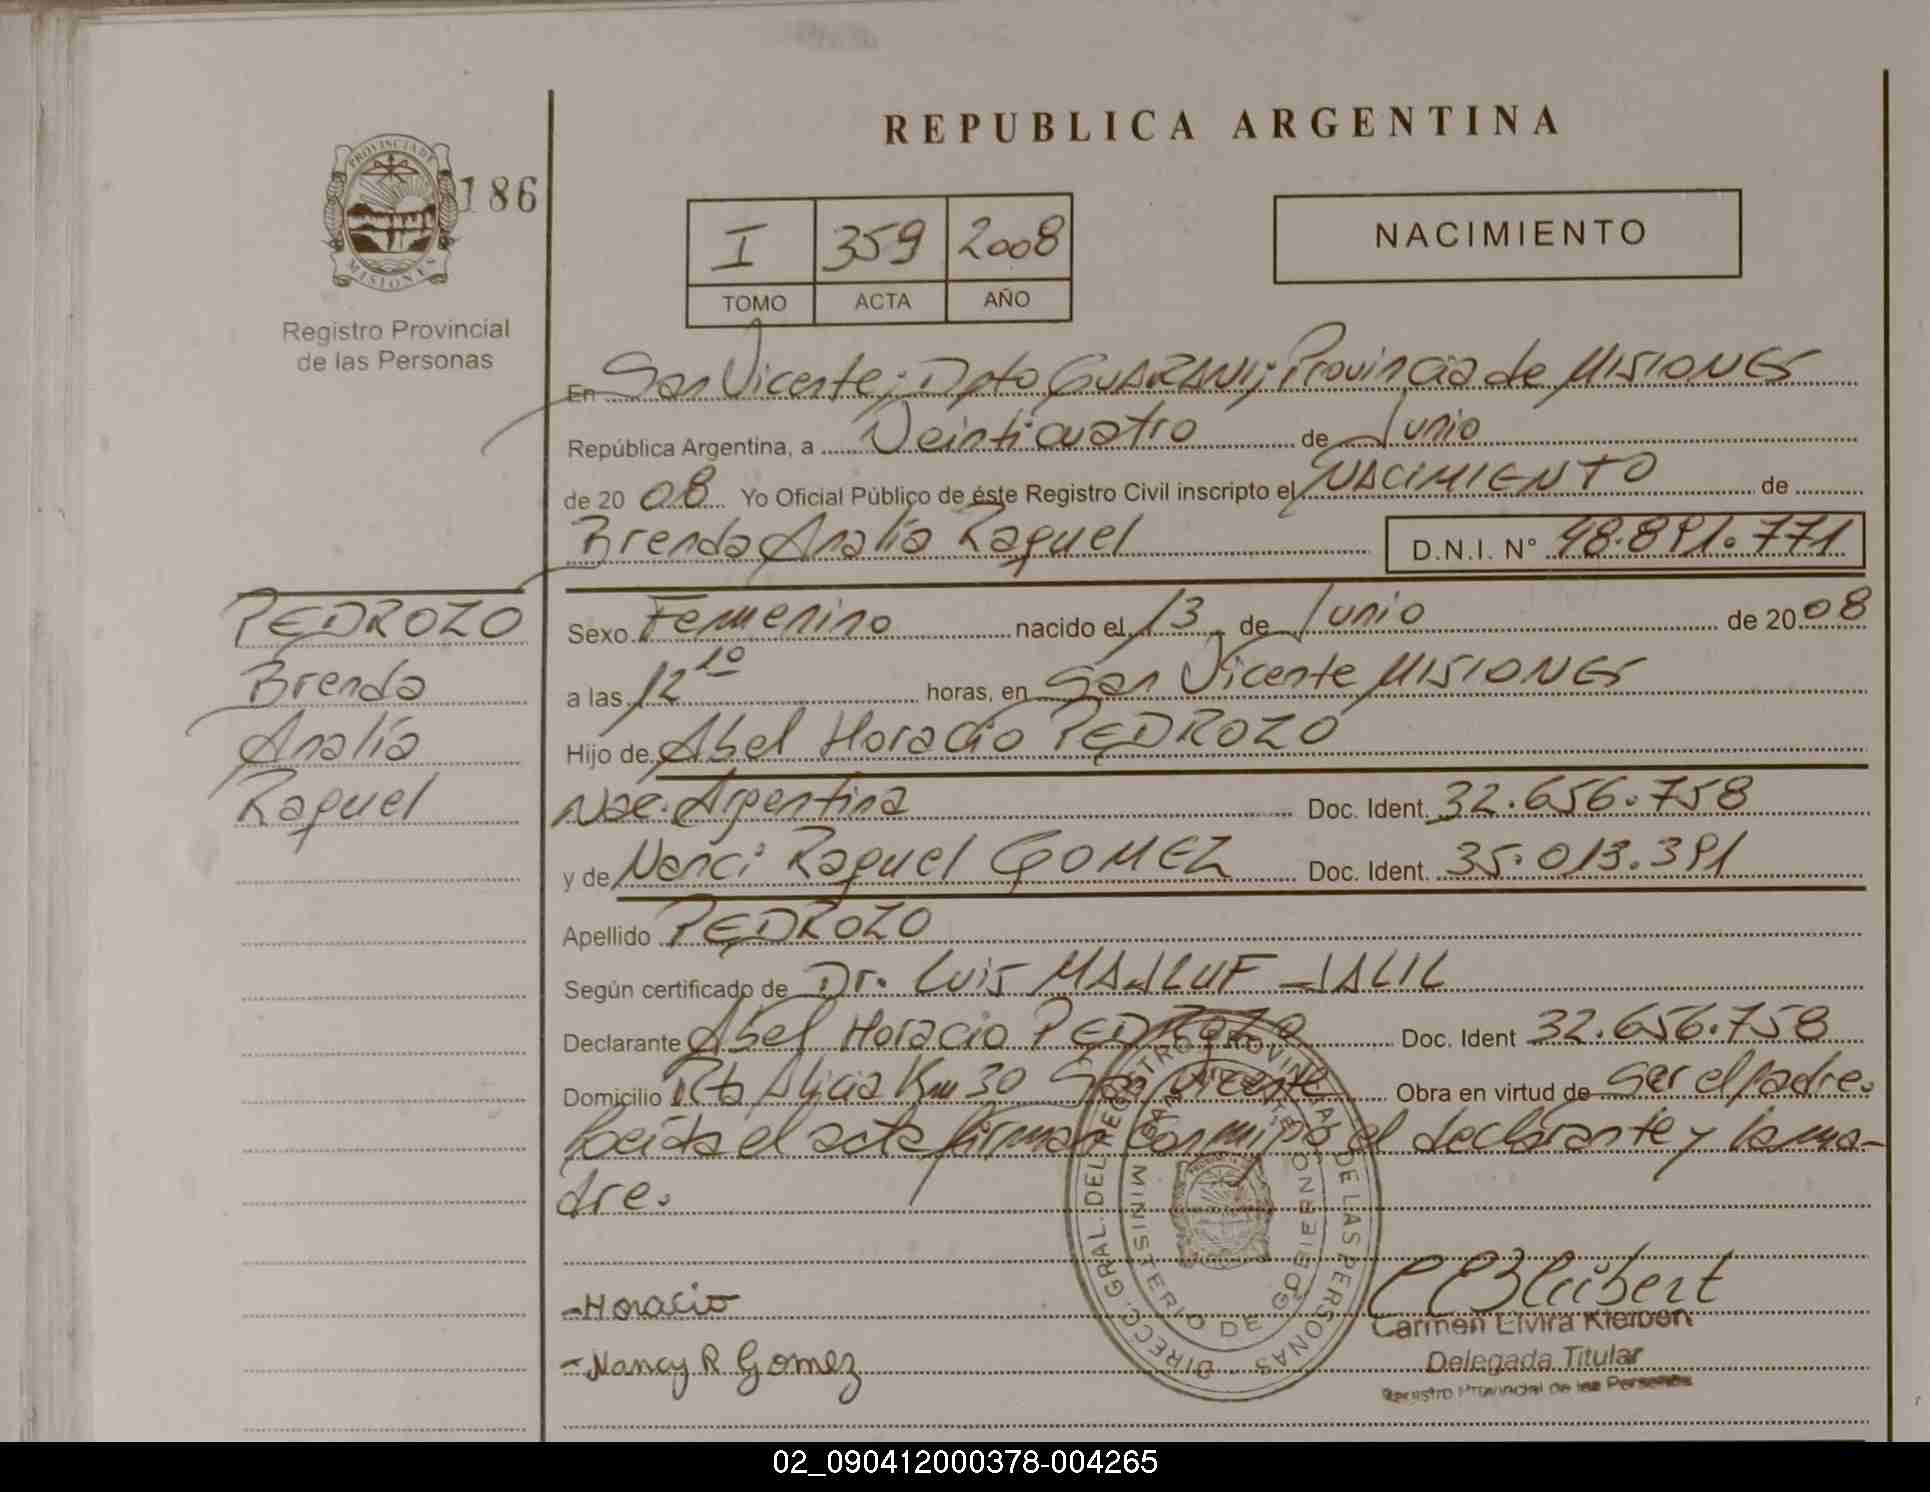 REPUBLICA ARGENTINA
PROVINCIA DE
MISIONES
186
Registro Provincial
de las Personas
I 359 2008
TOMO ACTA AÑO
NACIMIENTO
En San Vicente; Dpto GUARANI; Provincia de MISIONES
República Argentina, a Veinticuatro de Junio
de 20 08 Yo Oficial Público de éste Registro Civil inscripto el NACIMIENTO de
Brenda Analía Raquel D.N.I. N° 48.891.771
PEDROZO
Brenda
Analía
Raquel
Sexo Femenino nacido el 13 de Junio de 20 08
a las 12 10 horas, en San Vicente MISIONES
Hijo de Abel Horacio PEDROZO
Nac. Argentina Doc. Ident. 32.656.758
y de Nanci Raquel GOMEZ Doc. Ident. 35.013.391
Apellido PEDROZO
Según certificado de Dr. Luis MAALUF JALIL
Declarante Abel Horacio PEDROZO Doc. Ident 32.656.758
Domicilio Rta Alicia Km 30 San Vicente Obra en virtud de Ser el padre.
Leída el acta firman conmigo el declarante y la ma-
dre.
DIRECC. GRAL. DEL REGISTRO PROVINCIAL DE LAS PERSONAS
MINISTERIO DE GOBIERNO
-Horacio
-Nancy R Gomez
Carmen Elvira Kleiben
Delegada Titular
Registro Provincial de las Personas
02_090412000378-004265